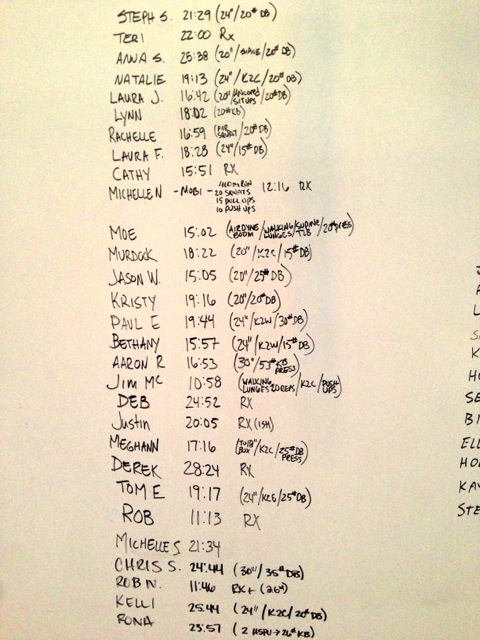 STEPH S. 21:29 (24"/20# DB)
TERI 22:00 RX
ANNA S. 25:38 (20"/ /20# DB)
NATALIE 19:13 (24"/K2C/20# DB)
LAURA J. 16:42 (20"/ SITUPS/20# DB)
LYNN 18:02 (20# KB)
RACHELLE 16:59 ( SQUAT/20# DB)
LAURA F. 18:28 (24"/15# DB)
CATHY 15:51 RX
MICHELLE N - MOBI - 400m RUN 12:16 RX
20 SQUATS
15 PULL UPS
10 PUSH UPS
MOE 15:02 (AIRDYNE /WALKING LUNGES/SUPINE T2B/20# PRESS)
MURDOCK 18:22 (20"/K2C/15# DB)
JASON W. 15:05 (20"/25# DB)
KRISTY 19:16 (20"/20# DB)
PAUL E 19:44 (24"/K2W/30# DB)
BETHANY 15:57 (24"/K2W/15# DB)
AARON R 16:53 (30"/53# KB PRESS)
JIM MC 10:58 (WALKING LUNGES 20 REPS/K2C/PUSH UPS)
DEB 24:52 RX
Justin 20:05 RX (ISH)
MEGHANN 17:16 ( BOX/K2C/25# DB PRESS)
DEREK 28:24 RX
TOM E 19:17 (24"/K2E/25# DB)
ROB 11:13 RX
MICHELLE S 21:34
CHRIS S. 24:44 (30"/35# DB)
ROB N. 11:46 RX+
KELLI 25:44 (24"/K2C/20# DB)
RONA 23:57 (2 HSPU → 26# KB)